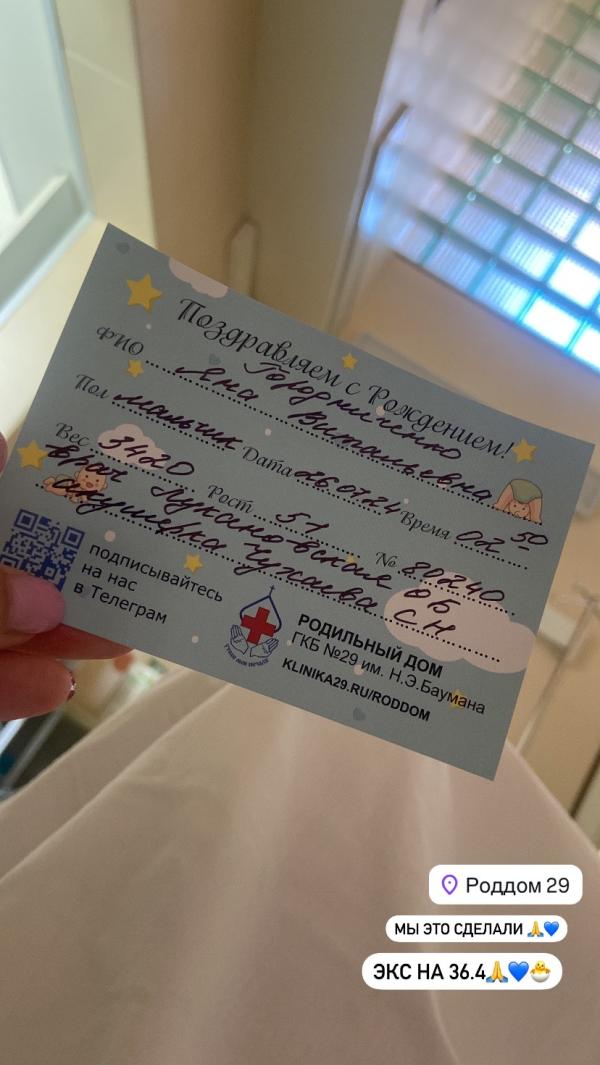 Поздравляем с Рождением!
ФИО Городниченко
Яна Витальевна
Пол мальчик Дата 26.07.24 Время 02 50
Вес 3420 Рост 51 № 80240
врач Лукановская ОБ
акушерка Чухаева СН
подписывайтесь
на нас
в Телеграм
РОДИЛЬНЫЙ ДОМ
ГКБ №29 им. Н.Э.Баумана
KLINIKA29.RU/RODDOM
Роддом 29
МЫ ЭТО СДЕЛАЛИ 🙏💙
ЭКС НА 36.4🙏💙🐣